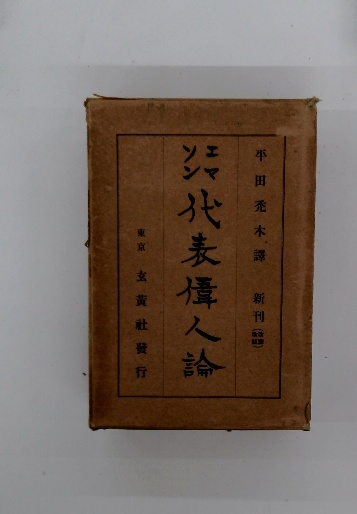 平田禿木譯 新刊
エマソン
代表偉人論
東京 玄黄社發行